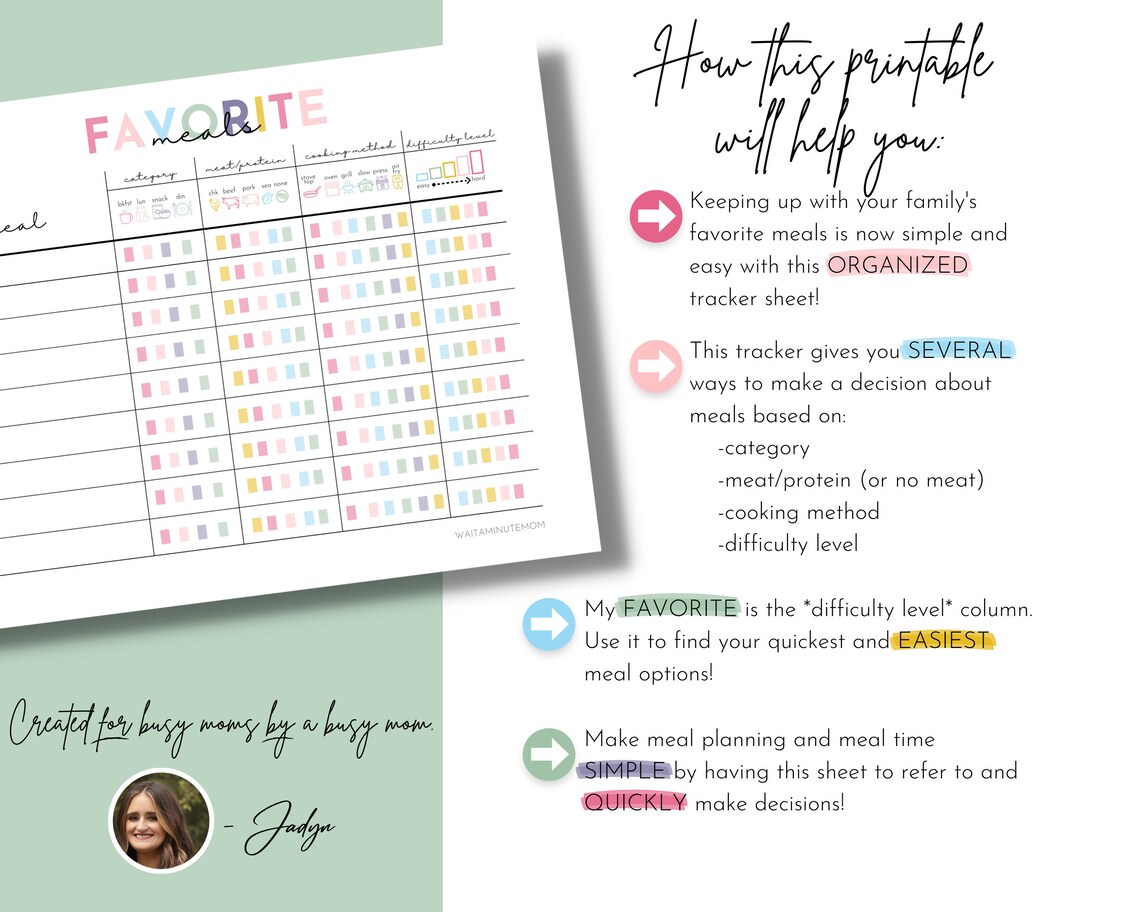 FAVORITE
meals
category
meat/protein
cooking method
difficulty level
bkfst lun snack din
chk beef pork sea none
stove top oven grill slow press. air fry
easy hard
eal
WAITAMINUTEMOM
Created for busy moms by a busy mom.
- Jadyn
How this printable
will help you:
Keeping up with your family's
favorite meals is now simple and
easy with this ORGANIZED
tracker sheet!
This tracker gives you SEVERAL
ways to make a decision about
meals based on:
-category
-meat/protein (or no meat)
-cooking method
-difficulty level
My FAVORITE is the *difficulty level* column.
Use it to find your quickest and EASIEST
meal options!
Make meal planning and meal time
SIMPLE by having this sheet to refer to and
QUICKLY make decisions!